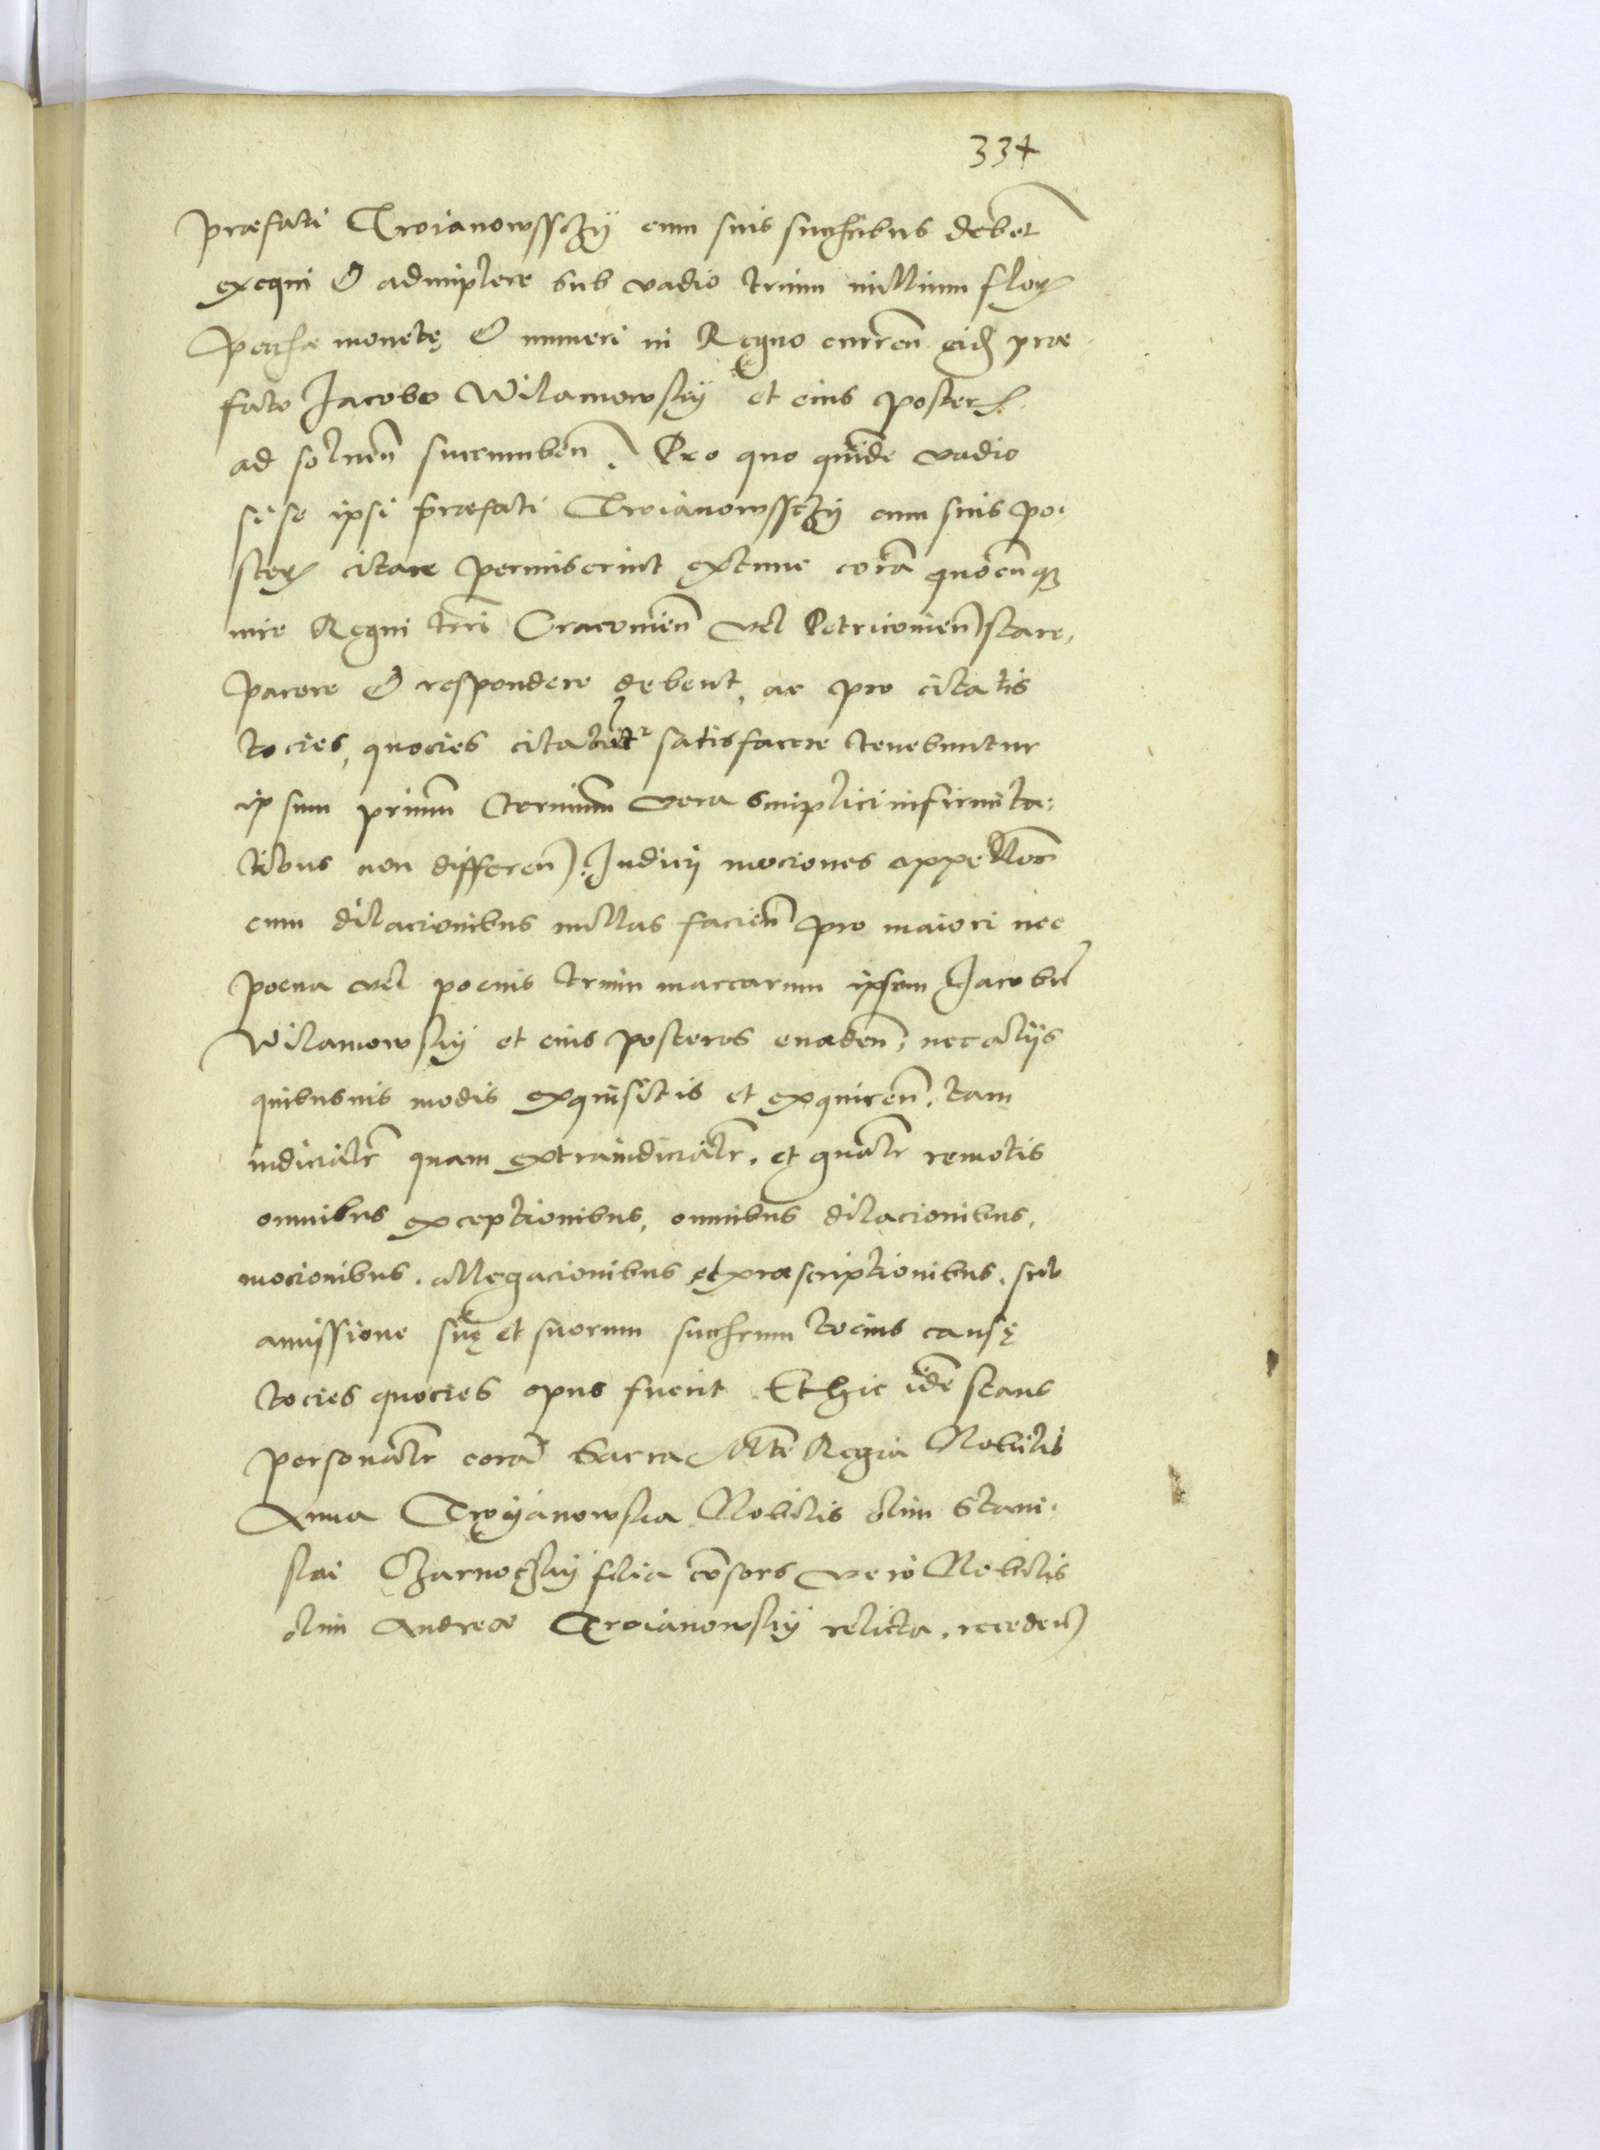 334
praefati Troianowssczÿ cum suis succhribus debet
exequi et adimplere sub vadio trium millium floꝝ
peccuniae monetę et numeri in Regno curren eidē prae
fato Jacobo Wilamowskÿ et eius posterꝫ
ad solven succumben. Pro quo quidē vadio
si se ipsi praefati Troianowssczÿ cum suis po
steꝝ citare permiserint extunc corā quocūqꝫ
iure Regni trri Cracovien vel Petricovien stare,
parere et respondere debent, ac pro citatis
tocies, quocies citabūtr satisfacere tenebuntur
ipsum primum terminum vera simplici infirmita:
tibus non differen. Judicij mociones appellaōes
cum dilacionibus nullas facien pro maiori nec
poena vel poenis trium marcarum ipsum Jacobū
Wilamowskÿ et eius posteros evaden, nec alijs
quibusuis modis exquisitis et exquiren, tam
iudicialr quam extraiudicialr, et gnālr remotis
omnibus exceptionibus, omnibus dilacionibus,
mocionibus, allegacionibus et praescriptionibus, sub
amissione suę et suorum succhrum tocius causę
tocies quocies opus fuerit. Et hic idē stans
personalr corā Sacra Mte Regia Nobilis
Anna Troÿanowska Nobilis olim Stani
slai Czarnoczkÿ filia cōsors vero Nobilis
olim Andreae Troianowskÿ relicta, receden